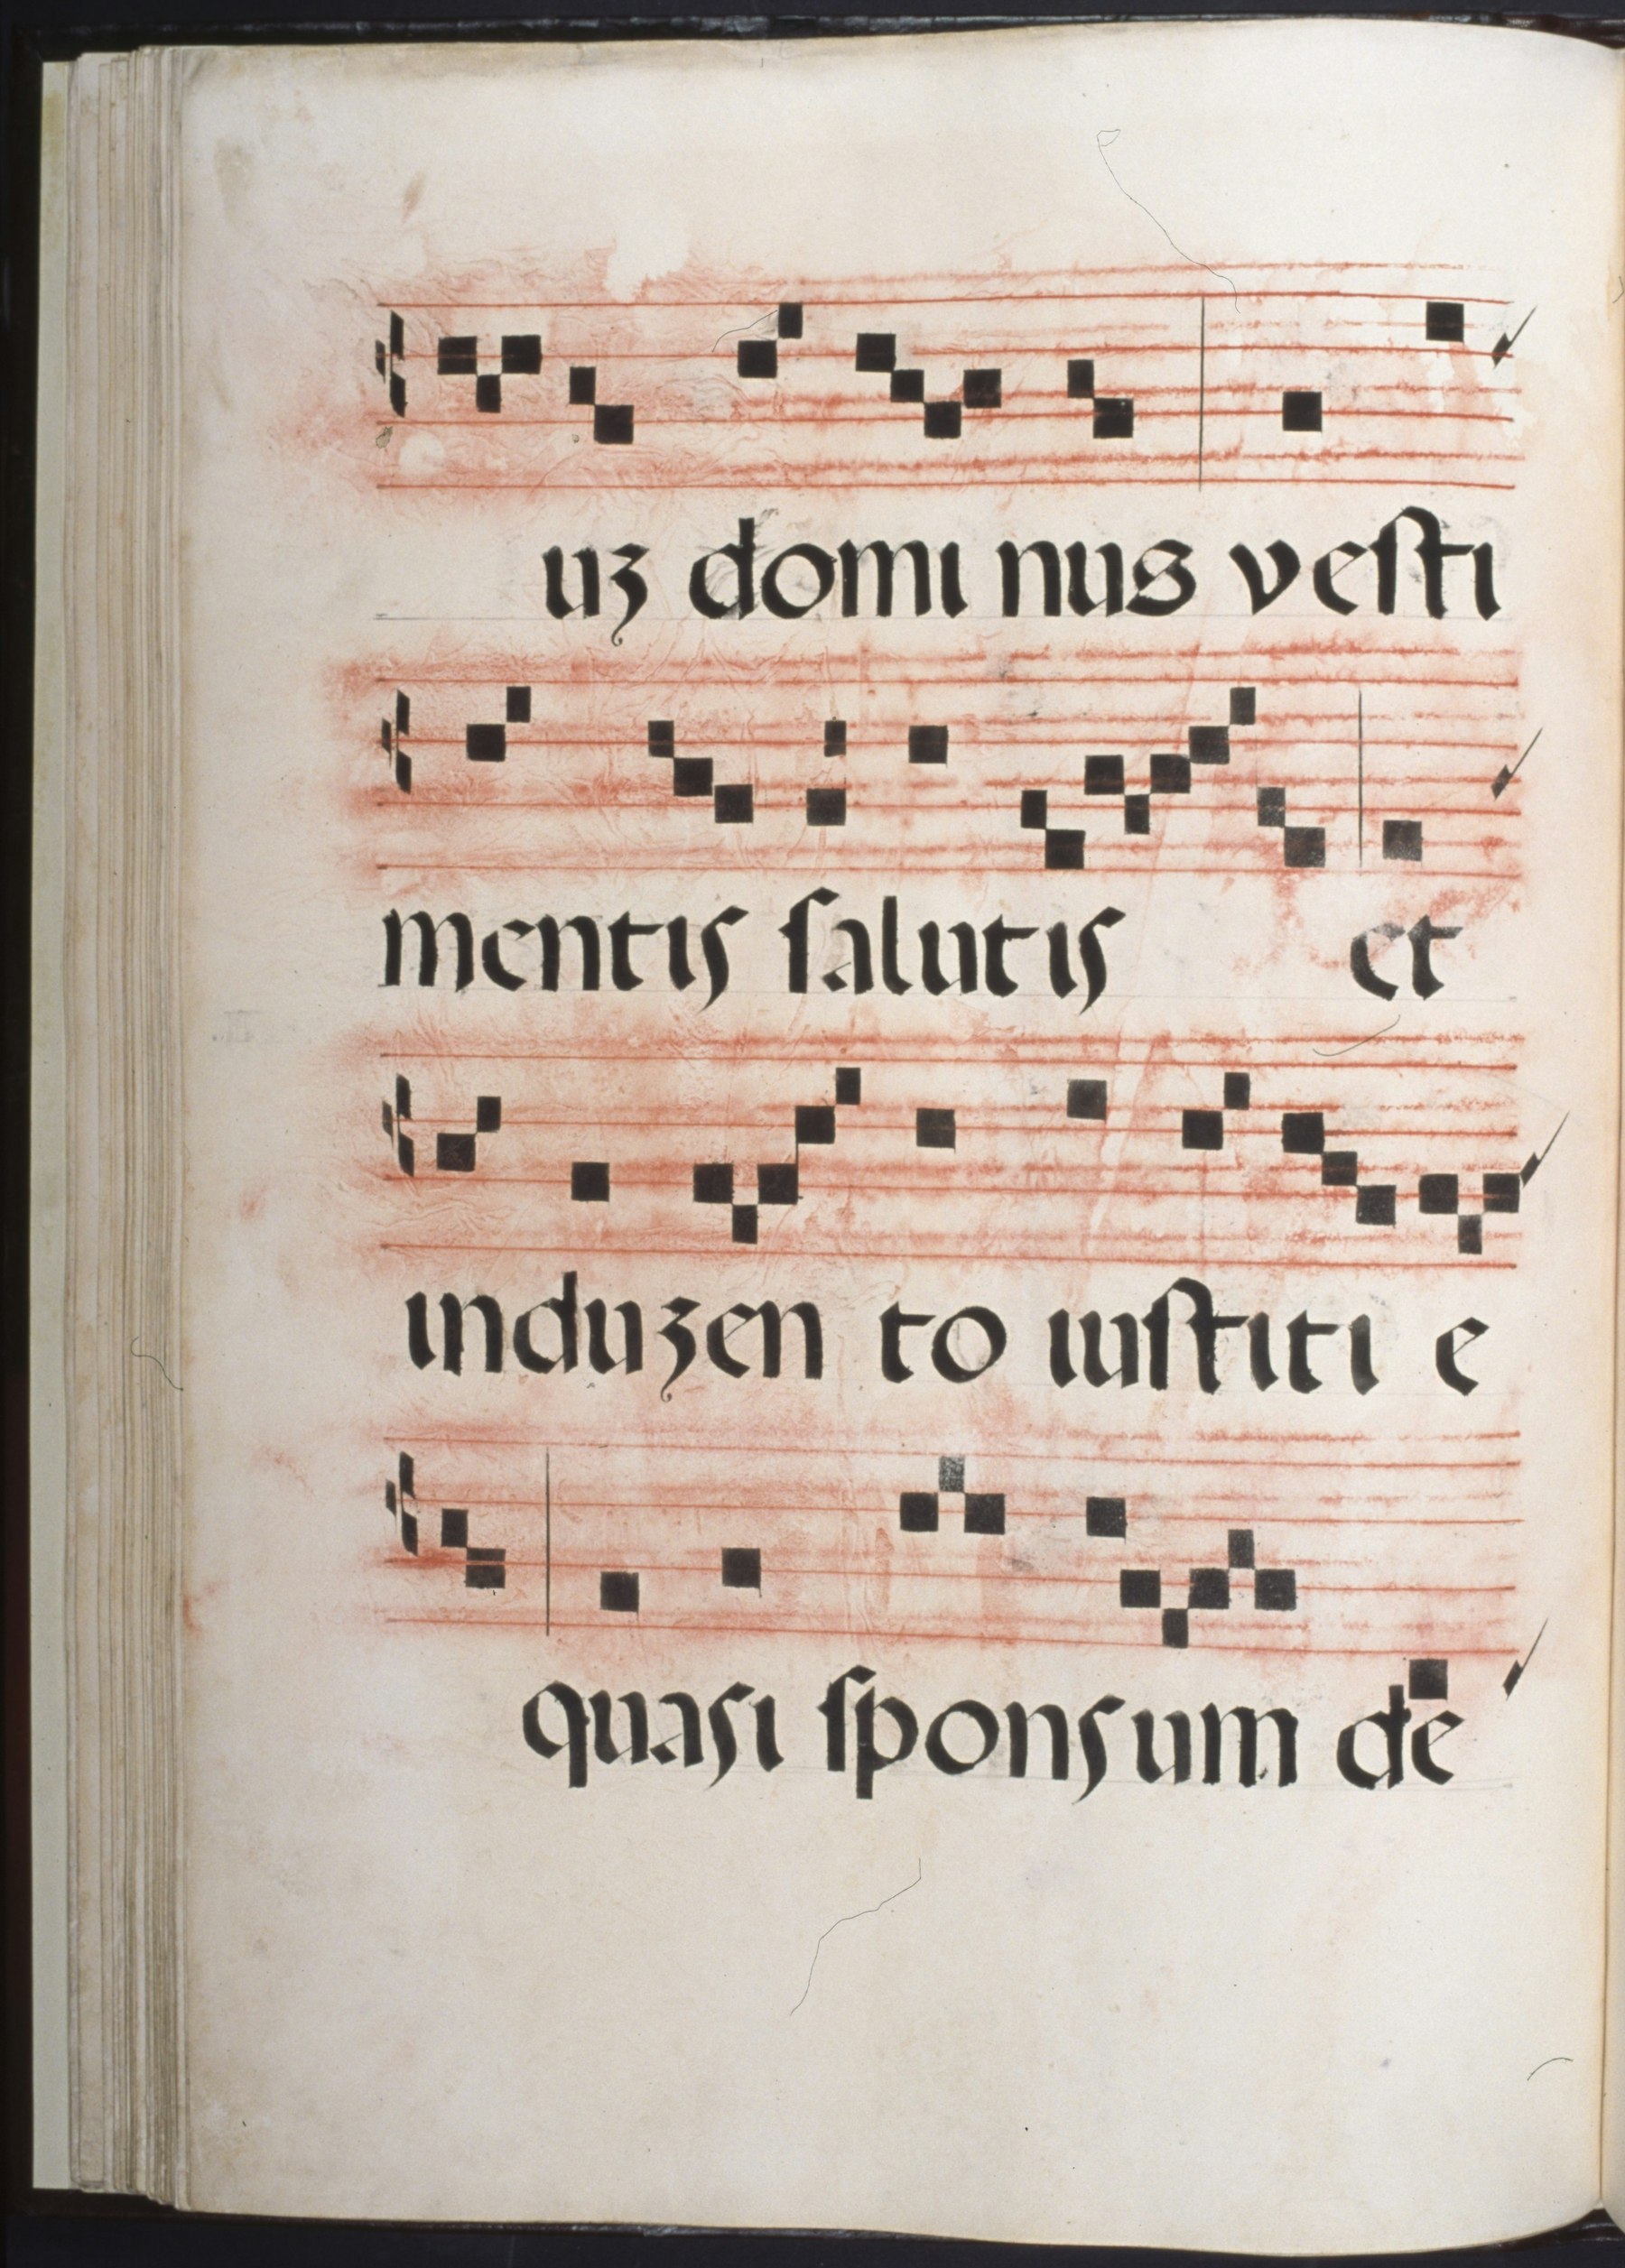 uʒ domi nus vesti
mentis salutis et
induʒen to iustiti e
quasi sponsum de